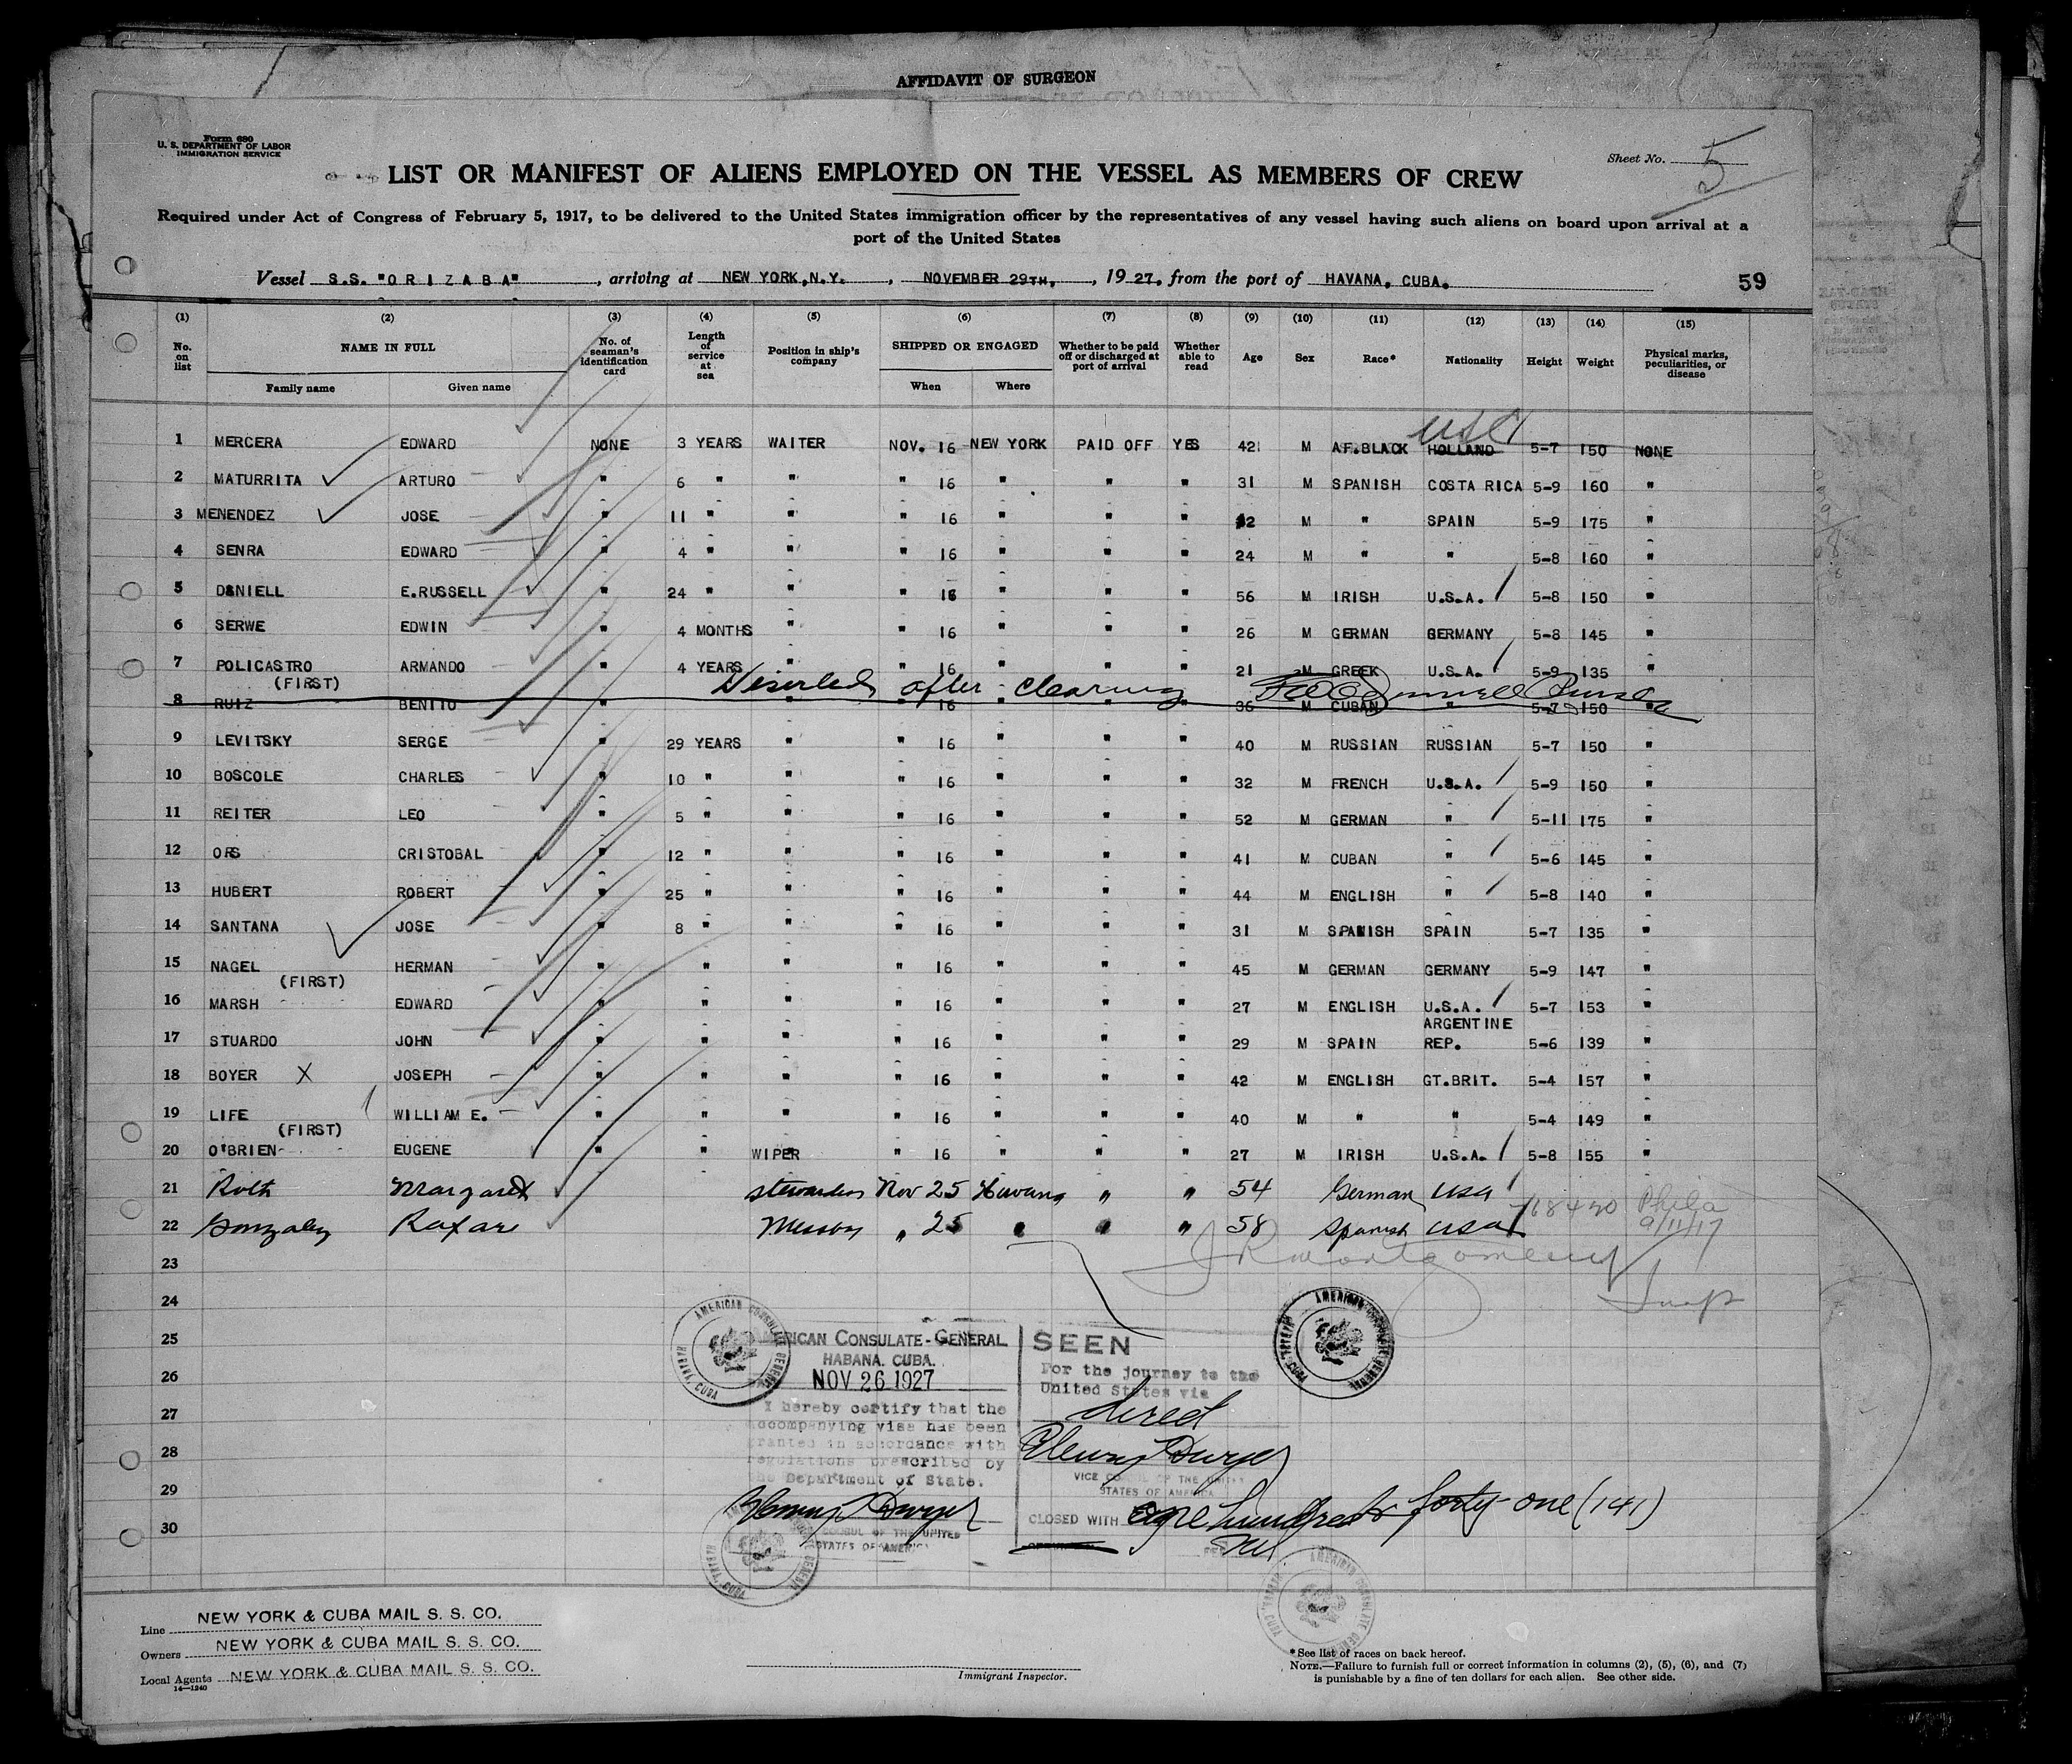 AFFIDAVIT OF SURGEON
Form 680
U. S. DEPARTMENT OF LABOR
IMMIGRATION SERVICE
Sheet No. 5
LIST OR MANIFEST OF ALIENS EMPLOYED ON THE VESSEL AS MEMBERS OF CREW
Required under Act of Congress of February 5, 1917, to be delivered to the United States immigration officer by the representatives of any vessel having such aliens on board upon arrival at a
port of the United States
Vessel S.S. "ORIZABA", arriving at NEW YORK,N.Y., NOVEMBER 29TH., 1927, from the port of HAVANA, CUBA. 59
(1) (2) (3) (4) (5) (6) (7) (8) (9) (10) (11) (12) (13) (14) (15)
No. on list NAME IN FULL No. of seaman's identification card Length of service at sea Position in ship's company SHIPPED OR ENGAGED Whether to be paid off or discharged at port of arrival Whether able to read Age Sex Race* Nationality Height Weight Physical marks, peculiarities, or disease
Family name Given name When Where
USC
1 MERCERA EDWARD NONE 3 YEARS WAITER NOV. 16 NEW YORK PAID OFF YES 42 M AF.BLACK HOLLAND 5-7 150 NONE
2 MATURRITA ARTURO " 6 " " " 16 " " " 31 M SPANISH COSTA RICA 5-9 160 "
3 MENENDEZ JOSE " 11 " " " 16 " " " 42 M " SPAIN 5-9 175 "
4 SENRA EDWARD " 4 " " " 16 " " " 24 M " " 5-8 160 "
5 DANIELL E.RUSSELL " 24 " " " 16 " " " 56 M IRISH U.S.A. 5-8 150 "
6 SERWE EDWIN " 4 MONTHS " " 16 " " " 26 M GERMAN GERMANY 5-8 145 "
7 POLICASTRO ARMANDO " 4 YEARS " " 16 " " " 21 M GREEK U.S.A. 5-9 135 "
(FIRST) Deserted after clearing Purser
8 RUIZ BENITO " " 16 " " " 36 M CUBAN " 5-7 150 "
9 LEVITSKY SERGE " 29 YEARS " " 16 " " " 40 M RUSSIAN RUSSIAN 5-7 150 "
10 BOSCOLE CHARLES " 10 " " " 16 " " " 32 M FRENCH U.S.A. 5-9 150 "
11 REITER LEO " 5 " " " 16 " " " 52 M GERMAN " 5-11 175 "
12 ORS CRISTOBAL " 12 " " " 16 " " " 41 M CUBAN " 5-6 145 "
13 HUBERT ROBERT " 25 " " " 16 " " " 44 M ENGLISH " 5-8 140 "
14 SANTANA JOSE " 8 " " " 16 " " " 31 M SPANISH SPAIN 5-7 135 "
15 NAGEL HERMAN " " " " 16 " " " 45 M GERMAN GERMANY 5-9 147 "
(FIRST)
16 MARSH EDWARD " " " " 16 " " " 27 M ENGLISH U.S.A. 5-7 153 "
ARGENTINE
17 STUARDO JOHN " " " " 16 " " " 29 M SPAIN REP. 5-6 139 "
18 BOYER X JOSEPH " " " " 16 " " " 42 M ENGLISH GT.BRIT. 5-4 157 "
19 LIFE WILLIAM E. " " " " 16 " " " 40 M " " 5-4 149 "
(FIRST)
20 O'BRIEN EUGENE " " WIPER " 16 " " " 27 M IRISH U.S.A. 5-8 155 "
21 Roth Margaret stewardess Nov 25 Havana " " 54 German USA
22 Gonzalez Rafael Messboy " 25 " " " 58 Spanish USA 768420 Phila 9/11/17
23 JR Montgomery
24 Insp
25 AMERICAN CONSULATE-GENERAL SEEN
HABANA, CUBA. For the journey to the
26 NOV 26 1927 United States via
27 I hereby certify that the direct
accompanying visa has been
28 granted in accordance with Henry Dwyer
regulations prescribed by VICE CONSUL OF THE UNITED
the Department of State. STATES OF AMERICA
29 Henry Dwyer CLOSED WITH one hundred & forty-one (141)
30 CONSUL OF THE UNITED
STATES OF AMERICA
AMERICAN CONSULATE GENERAL HABANA, CUBA
AMERICAN CONSULATE GENERAL HABANA, CUBA
AMERICAN CONSULATE GENERAL HABANA, CUBA
AMERICAN CONSULATE GENERAL HABANA, CUBA
Line NEW YORK & CUBA MAIL S. S. CO.
Owners NEW YORK & CUBA MAIL S. S. CO.
Local Agents NEW YORK & CUBA MAIL S. S. CO.
14—1240
Immigrant Inspector.
*See list of races on back hereof.
NOTE.—Failure to furnish full or correct information in columns (2), (5), (6), and (7)
is punishable by a fine of ten dollars for each alien. See other side.